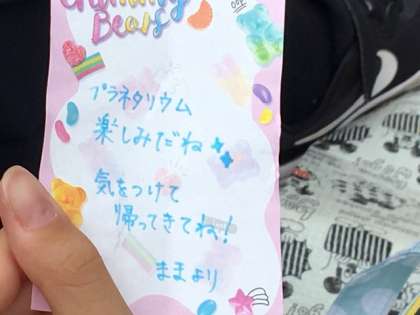 Gummy
Bears
プラネタリウム
楽しみだね
気をつけて
帰ってきてね!
ままより